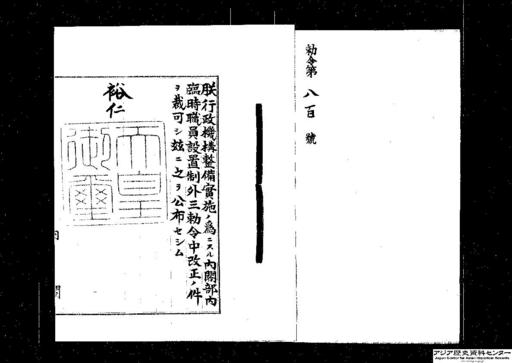 勅令第八百號
朕行政機構整備實施ノ爲ニスル内閣部内
臨時職員設置制外三勅令中改正ノ件
ヲ裁可シ玆ニ之ヲ公布セシム
裕仁
天皇
御璽
アジア歴史資料センター
Japan Center for Asian Historical Records